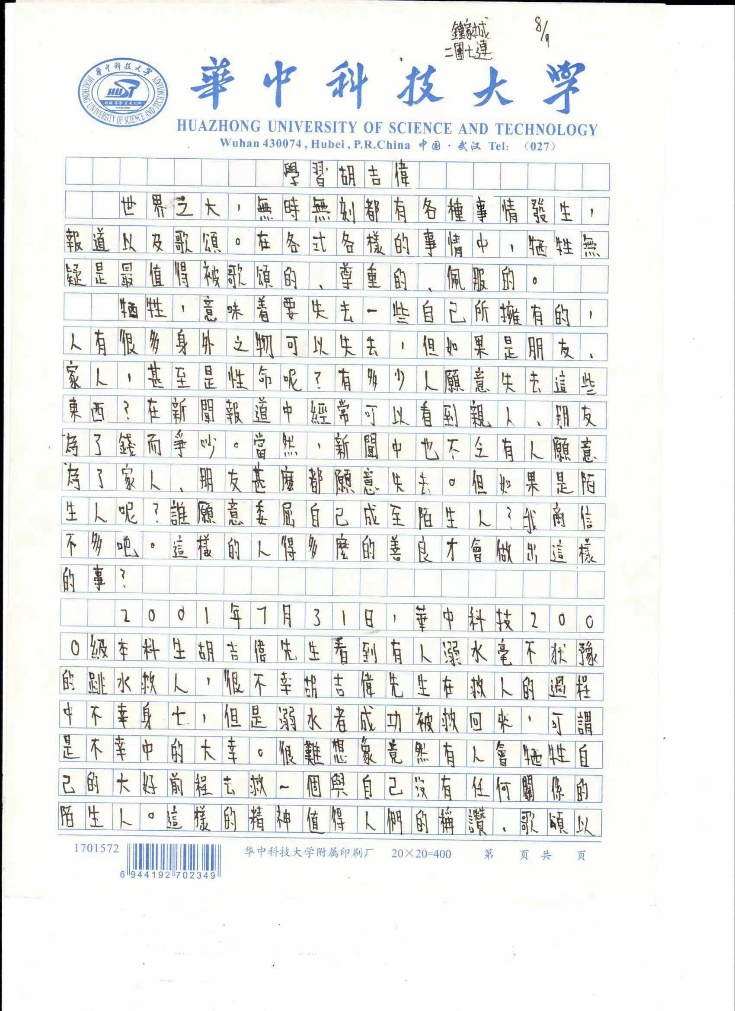 8/9
鐘家城
二團七連
華中科技大學
HUAZHONG UNIVERSITY OF SCIENCE AND TECHNOLOGY
Wuhan 430074, Hubei, P.R.China 中国·武汉 Tel: (027)
學習胡吉偉
世界之大，無時無刻都有各種事情發生，
報道以及歌頌。在各式各樣的事情中，牺牲無
疑是最值得被歌頌的、尊重的、佩服的。
牺牲，意味着要失去一些自己所擁有的，
人有很多身外之物可以失去，但如果是朋友、
家人，甚至是性命呢？有多少人願意失去這些
東西？在新聞報道中經常可以看到親人、朋友
為了錢而爭吵。當然，新聞中也不乏有人願意
為了家人、朋友甚麼都願意失去。但如果是陌
生人呢？誰願意委屈自己成至陌生人？我商信
不多吧。這樣的人得多麼的善良才會做出這樣
的事？
2001年7月31日，華中科技200
0級本科生胡吉偉先生看到有人溺水毫不犹豫
的跳水救人，很不幸胡吉偉先生在救人的過程
中不幸身亡，但是溺水者成功被救回來，可謂
是不幸中的大幸。很難想象竟然有人會牺牲自
己的大好前程去救一個與自己沒有任何關係的
陌生人。這樣的精神值得人們的稱讚、歌頌以
1701572
6 944192 702349
华中科技大学附属印刷厂 20×20=400 第 页 共 页